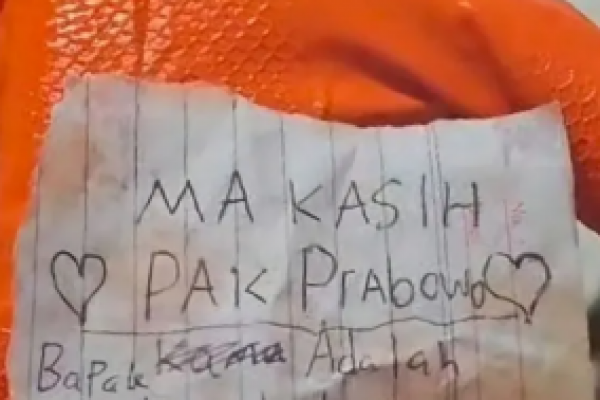 MAKASIH
PAK Prabowo
Bapak Adalah